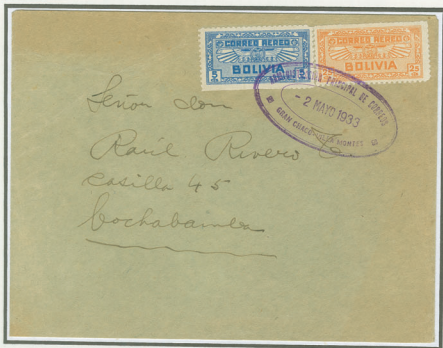 CORREO AEREO
5 BOLIVIA 5
CORREO AEREO
BOLIVIA
25
PRINCIPAL DE CORREOS
- 2 MAYO 1933
GRAN CHACO
Señor don
Raúl Rivero
casilla 45
Cochabamba